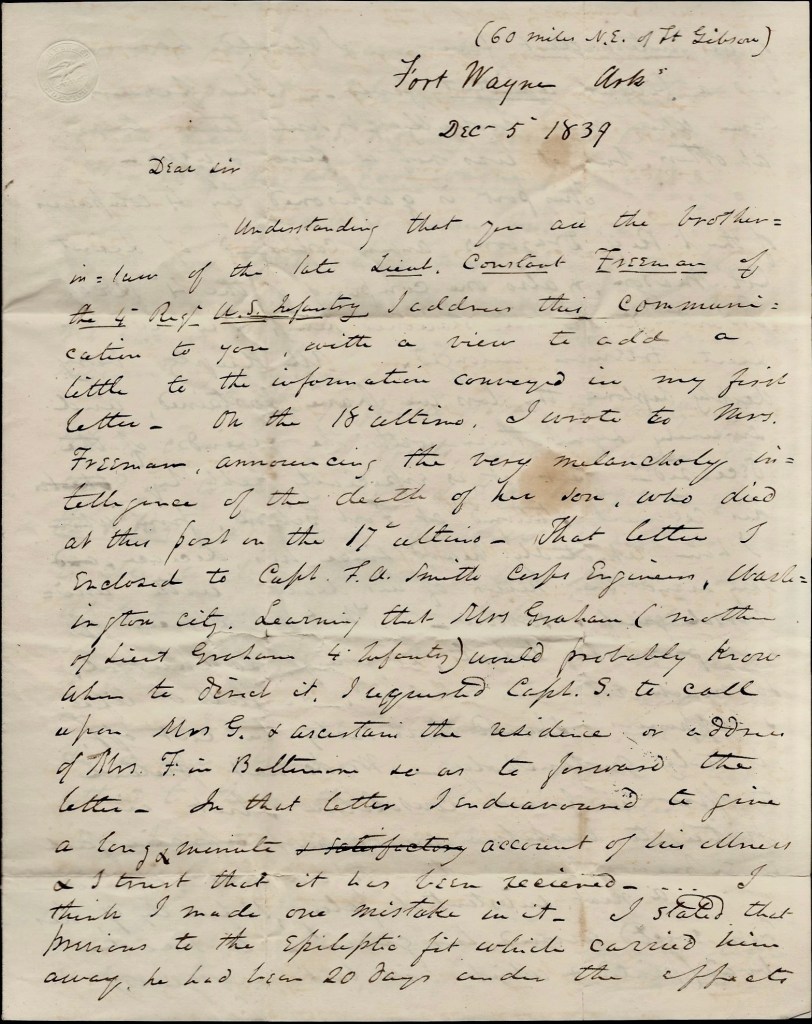 (60 miles N.E. of Ft Gibson)
Fort Wayne Arks
Dec 5 1839
Dear sir
Understanding that you are the brother=
in=law of the late Lieut. Constant Freeman of
the 4 Regt U.S. Infantry I address this communi=
cation to you, with a view to add a
little to the information conveyed in my first
letter - On the 18 ultimo, I wrote to Mrs.
Freeman, announcing the very melancholy in=
telligence of the death of her son, who died
at this post on the 17 ultimo - That letter I
enclosed to Capt. F.A. Smith Corps Engineers, Wash=
ington city. Learning that Mrs Graham (mother
of Lieut Graham 4 Infantry) would probably know
where to direct it, I requested Capt. S. to call
upon Mrs G. & ascertain the residence or address
of Mrs. F. in Baltimore so as to forward the
letter - In that letter I endeavoured to give
a long & minute & satisfactory account of his illness
& I trust that it has been recieved - .... I
think I made one mistake in it - I stated that
previous to the Epileptic fit which carried him
away, he had been 20 days under the effects